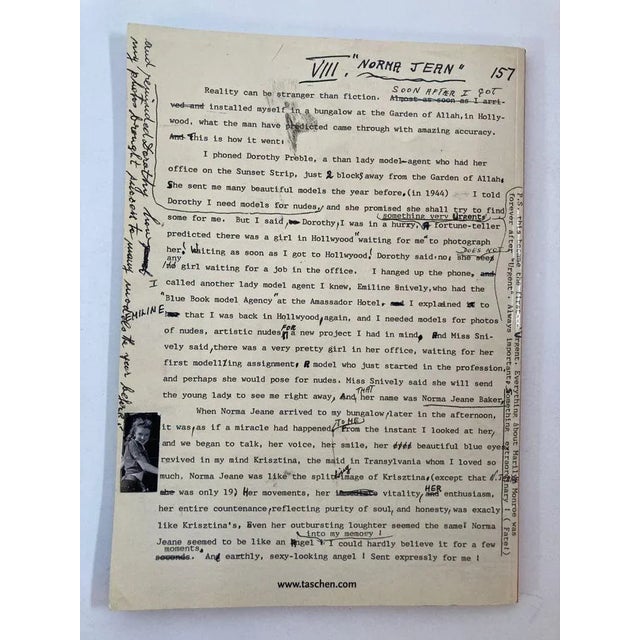 VIII. "NORMA JEAN"
157
SOON AFTER I GOT
Reality can be stranger than fiction. Almost as soon as I arri-
ved and installed myself in a bungalow at the Garden of Allah, in Holly-
wood, what the man have predicted came through with amazing accuracy.
And This is how it went:
I phoned Dorothy Preble, a than lady model-agent who had her
office on the Sunset Strip, just 2 blocks away from the Garden of Allah.
She sent me many beautiful models the year before, (in 1944) I told
Dorothy I need models for nudes, and she promised she shall try to find
something very Urgents
some for me. But I said, Dorothy, I was in a hurry. A fortune-teller
predicted there was a girl in Hollwyood "waiting for me" to photograph
DOES NOT
her! Waiting as soon as I got to Hollywood! Dorothy said no. she see
any
no girl waiting for a job in the office. I hanged up the phone, and I
called another lady model agent I knew, Emiline Snively, who had the
"Blue Book model Agency" at the Amassador Hotel, and I explained it to
EMILINE that I was back in Hollywood, again, and I needed models for photos
FOR
of nudes, artistic nudes, a new project I had in mind, And Miss Sni-
vely said, there was a very pretty girl in her office, waiting for her
first modelling assignment, A model who just started in the profession,
and perhaps she would pose for nudes. Miss Snively said she will send
THAT
the young lady to see me right away, And her name was Norma Jeane Baker.
When Norma Jeane arrived to my bungalow, later in the afternoon,
TO ME
it was, as if a miracle had happened from the instant I looked at her,
and we began to talk, her voice, her smile, her beautiful blue eyes
revived in my mind Krisztina, the maid in Transylvania whom I loved so
ing
much, Norma Jeane was like the split image of Krisztina, (except that N. Jeane
HER
she was only 19) Her movements, her vitality, and enthusiasm.
her entire countenance, reflecting purity of soul, and honesty, was exacly
like Krisztina's, Even her outbursting loughter seemed the same! Norma
into my memory!
Jeane seemed to be like an Angel I could hardly believe it for a few
moments,
seconds. And earthly, sexy-looking angel! Sent expressly for me!
www.taschen.com
and reminded Dorothy how
my photos brought success to many models the year before.
P.S. this became the first Urgent. Everything about Marilyn Monroe was
forever after "Urgent". Always important, Something extraordinary! (Fate!)